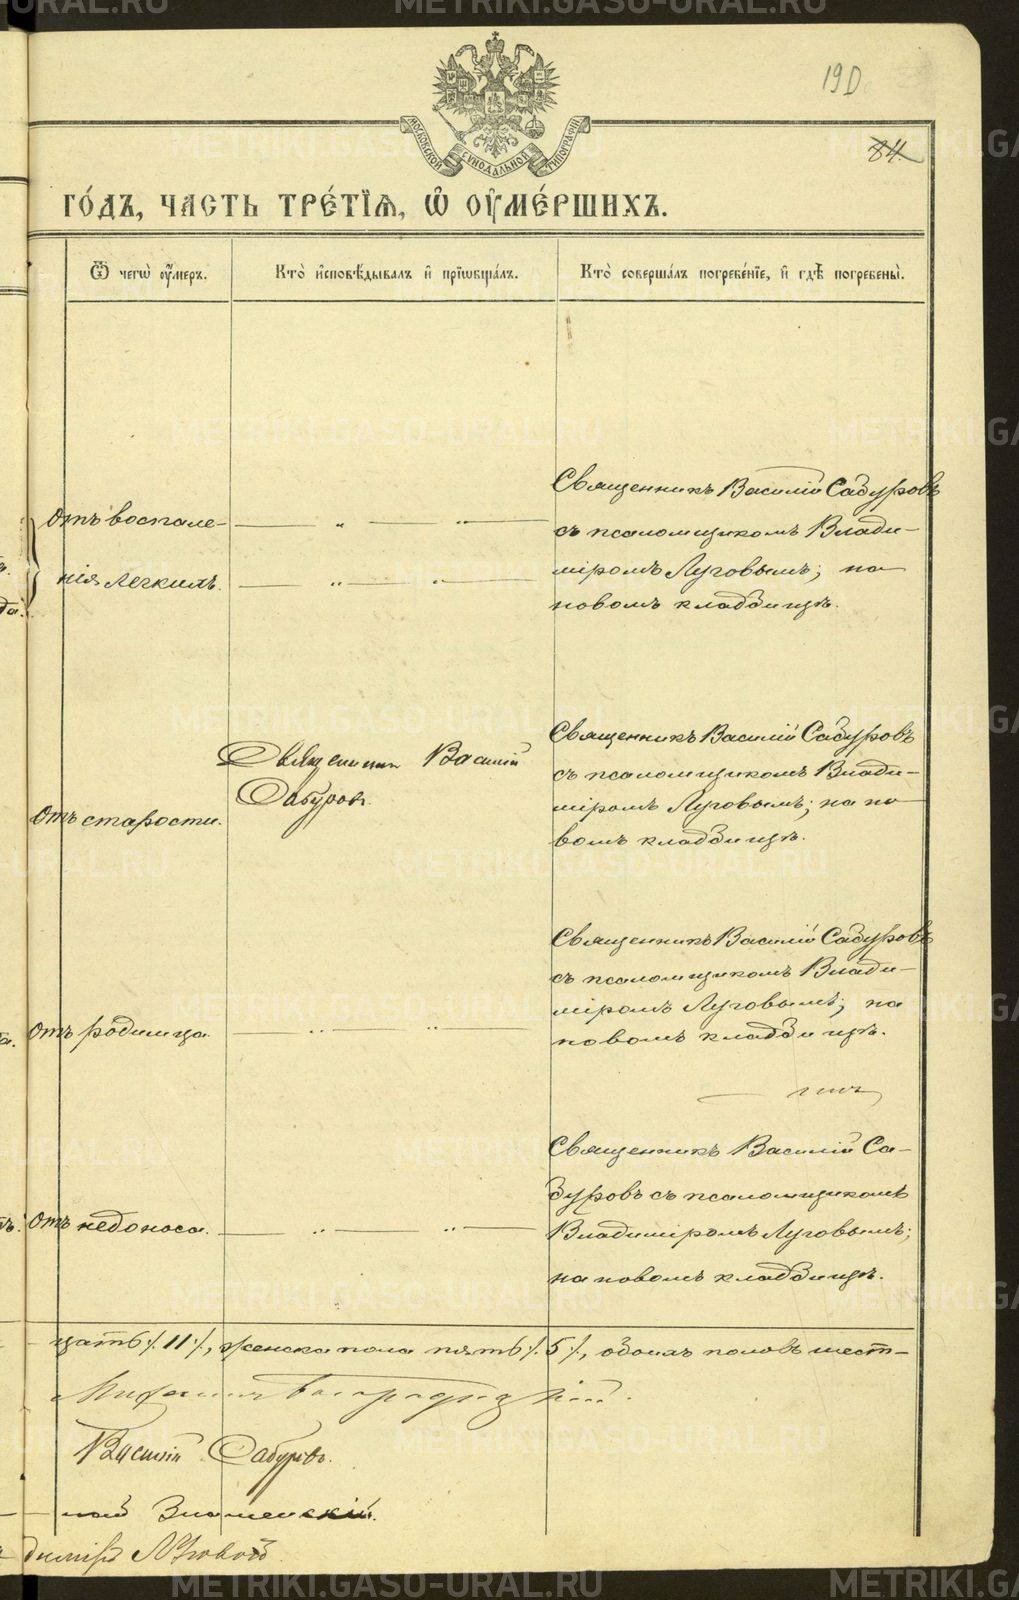 190
84
МОСКОВСКОЙ СѴНОДАЛЬНОЙ ТИПОГРАФІИ
ГО́ДЪ, ЧАСТЬ ТРЕ́ТІѦ, Ѽ ОУМЕ́РШИХЪ.
Ѿ чегѡ̀ оу́меръ.
Кто̀ и҆сповѣ́дывалъ и҆ прїѡбща́лъ.
Кто̀ соверша́лъ погребе́нїе, и҆ гдѣ̀ погребены̀.
Отъ воспале-
нія легкихъ.
Священникъ Василій Сабуровъ
съ псаломщикомъ Влади-
міромъ Луговымъ; на
новомъ кладбищѣ.
Отъ старости.
Священникъ Василій
Сабуровъ.
Священникъ Василій Сабуровъ
съ псаломщикомъ Влади-
міромъ Луговымъ; на но-
вомъ кладбищѣ.
Отъ родимца.
Священникъ Василій Сабуровъ
съ псаломщикомъ Влади-
міромъ Луговымъ; на
новомъ кладбищѣ.
Отъ недоноса.
Священникъ Василій Са-
буровъ съ псаломщикомъ
Владиміромъ Луговымъ;
на новомъ кладбищѣ.
цать /. 11 /., женска пола пять /. 5 /., обоихъ половъ шест-
Василій Сабуровъ.
Знаменскій.
диміръ Луговой
METRIKI.GASO-URAL.RU